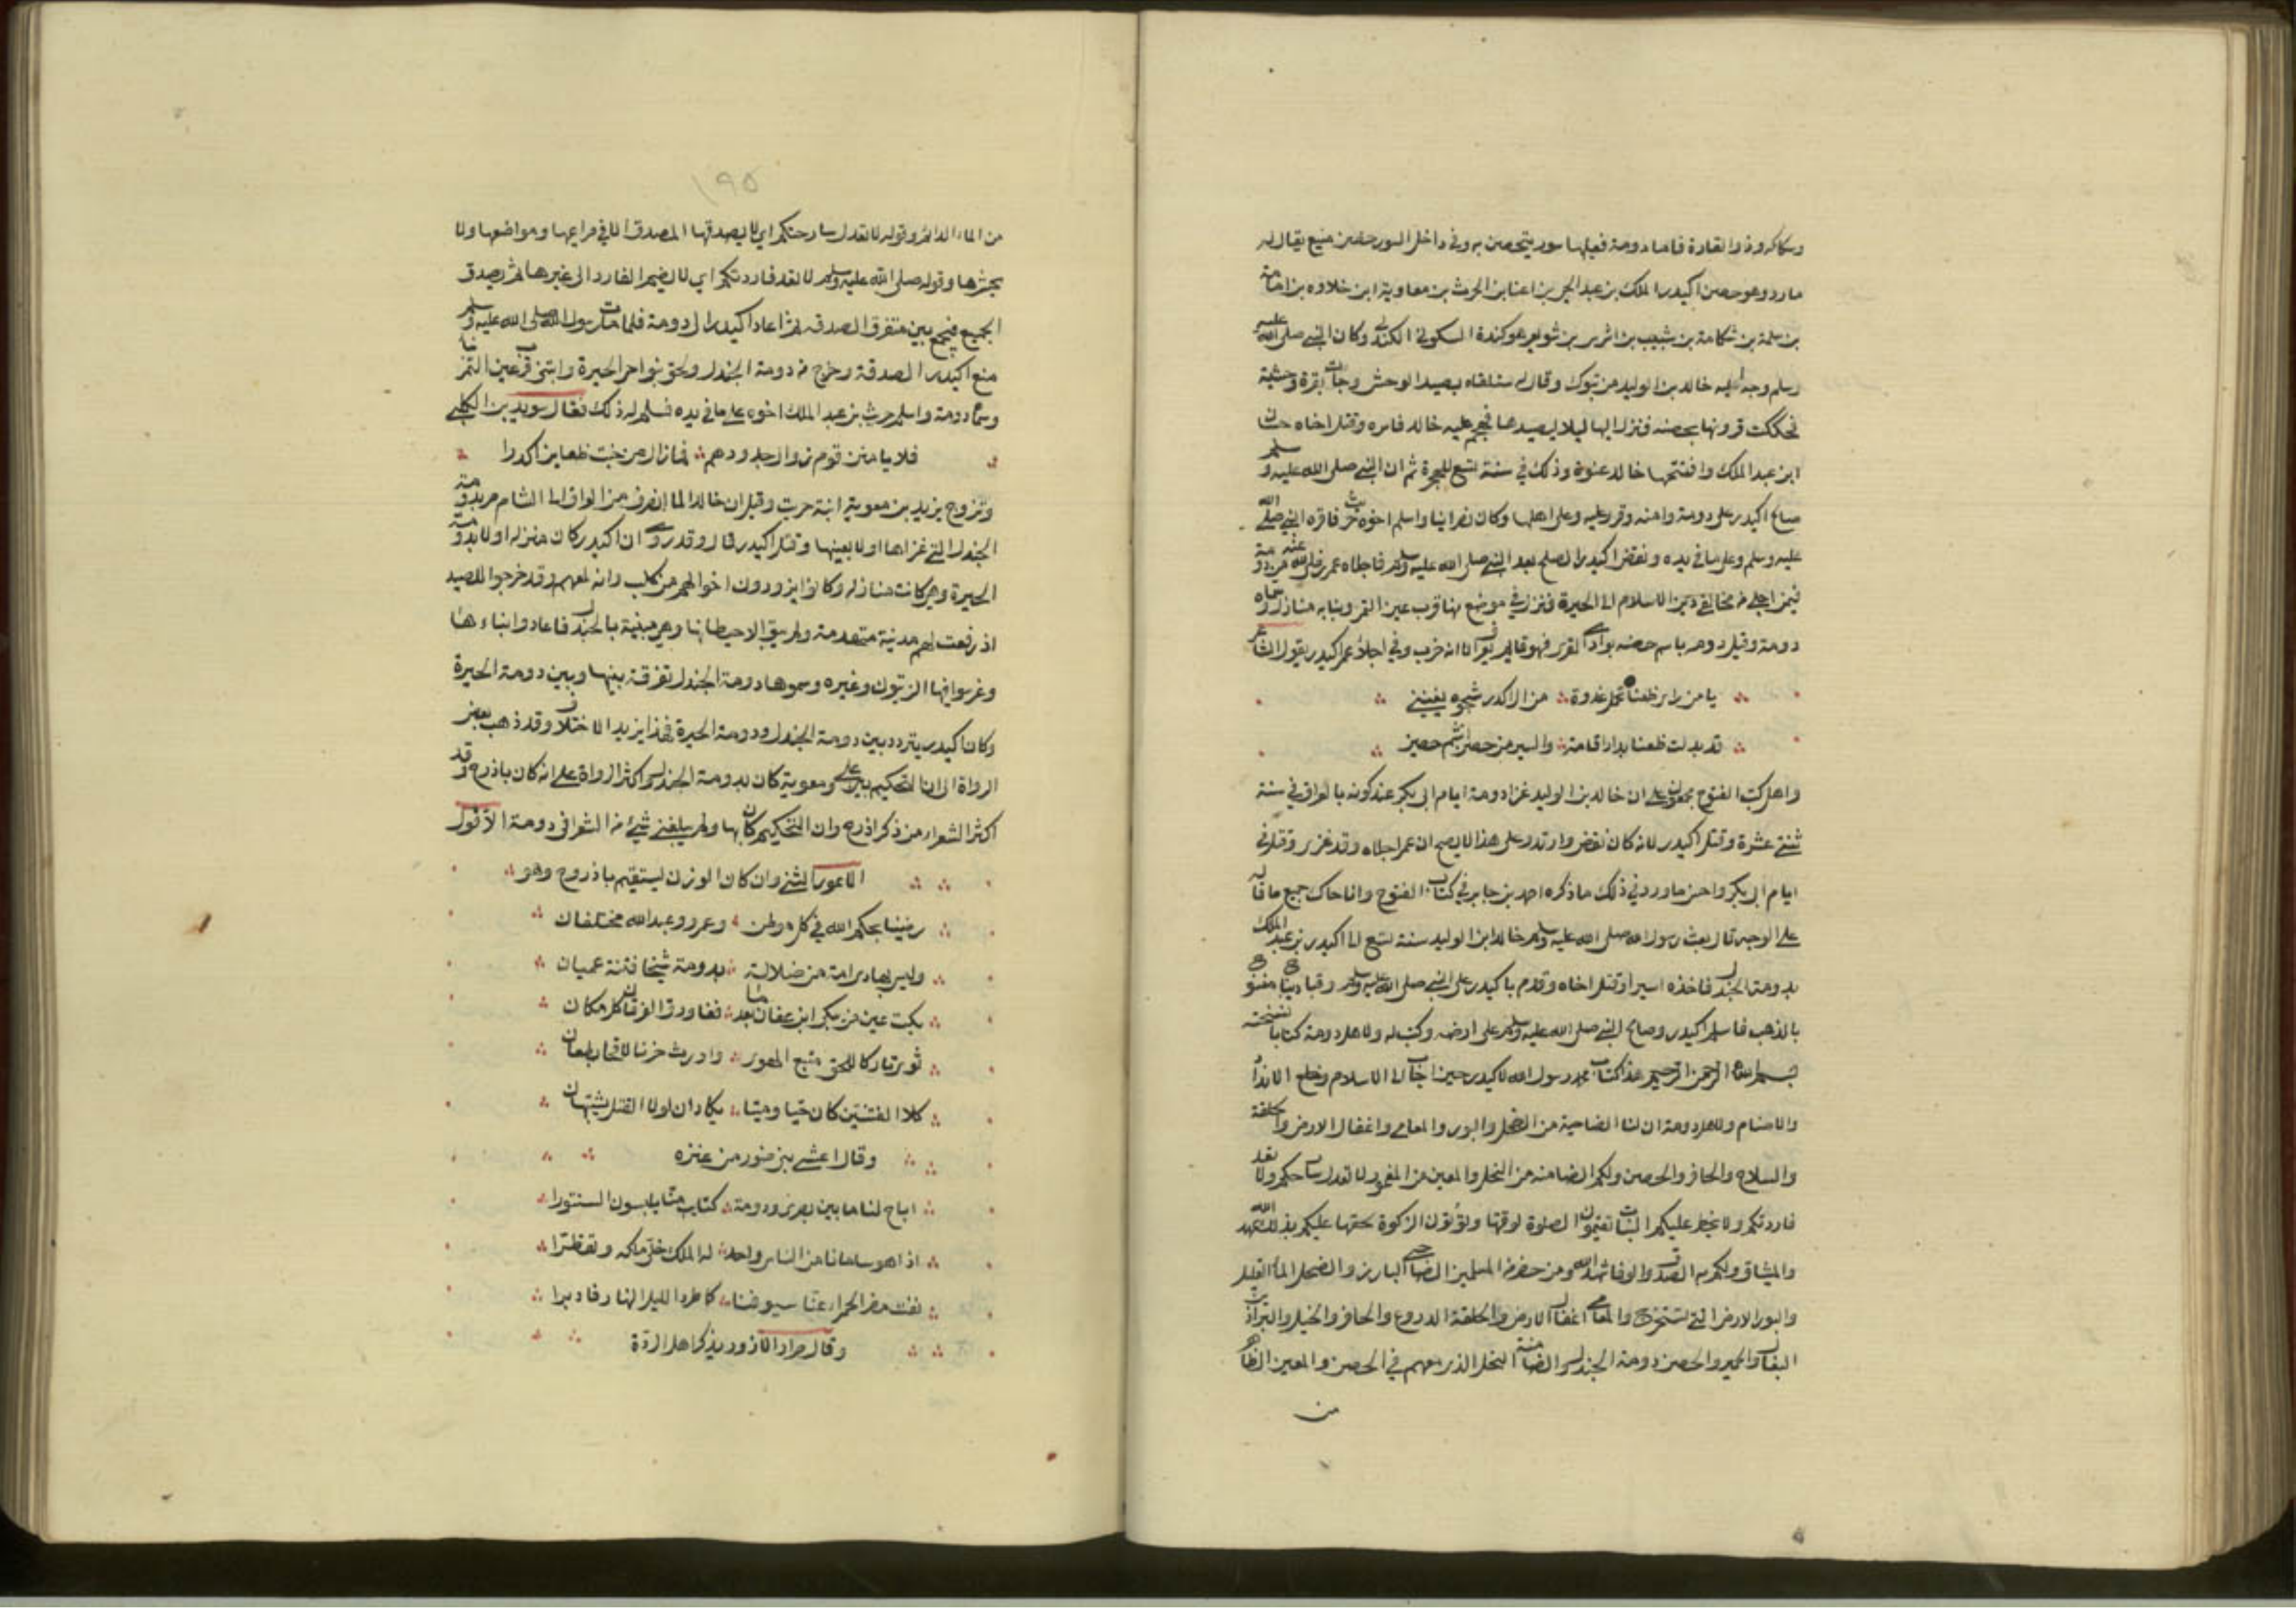 وسكاكه وذو القارة فاما دومة فعليها سور يتحصن به وفي داخل السور حصن منيع يقال له
مارد وهو حصن اكيدر الملك بن عبد الحي بن اعنا بن الحرث بن معاوية ابن خلاوه بن امامة
بن سلمة بن شكامة بن شبيب بن اثرس بن ثور بن وهو كندة السكوني الكندي وكان النبي صلى الله عليه
وسلم وجه اليه خالد بن الوليد من تبوك وقال له ستلقاه يصيد الوحش وجات بقرة وحشية
تحككت قرونها بحصنه فنزل اليها ليلا ليصيدها فهجم عليه خالد فاسره وقتل اخاه حسان
ابن عبد الملك وافتتحها خالد عنوة وذلك في سنة تسع للهجرة ثم ان النبي صلى الله عليه وسلم
صالح اكيدر على دومة وامنه وقرر عليه وعلى اهلها وكان نصرانيا واسلم اخوه حريث فاقره النبي صلى الله
عليه وسلم وعلى ما في يده ونقض اكيدر الصلح بعد النبي صلى الله عليه وسلم فاجلاه عمر رضي الله عنه من دومة
فيمن اجلي من مخالفي دين الاسلام الى الحيرة فنزل في موضع منها قرب عين التمر وبنا به منازل وسماه
دومة وقيل دوما باسم حصنه بوادي القرى فهو قايم يعرف الا انه خرب وفي اجلاء عمر اكيدر يقول الشاعر
يا من راى ظعنا تحمل غدوة من ال اكدر شجوه يعنيني
قد بدلت ظعنا بدار اقامة والسير من حصن اشم حصين
واهل كتب الفتوح مجمعون على ان خالد بن الوليد غزا دومة ايام ابي بكر عند كونه بالعراق في سنة
ثنتي عشرة وقتل اكيدر لانه كان نقض وارتد وعلى هذا لا يصح ان عمر اجلاه وقد غزي وقتل في
ايام ابي بكر واحسن ما ورد في ذلك ما ذكره احمد بن جابر في كتاب الفتوح وانا حاك جميع ما قاله
على الوجه قال بعث رسول الله صلى الله عليه وسلم خالد ابن الوليد سنة تسع الى اكيدر بن عبد الملك
بدومة الجندل فاخذه اسيرا وقتل اخاه وقدم باكيدر على النبي صلى الله عليه وسلم وقبا ديباج منسوج
بالذهب فاسلم اكيدر وصالح النبي صلى الله عليه وسلم على ارضه وكتب له ولاهل دومة كتابا نسخته
بسم الله الرحمن الرحيم هذا كتاب محمد رسول الله لاكيدر حين اجاب الى الاسلام وخلع الانداد
والاصنام ولاهل دومة ان لنا الضاحية من الضحل والبور والمعامي واغفال الارض والحلقة
والسلاح والحافر والحصن ولكم الضامنة من النخل والمعين من المعمور لا تعدل سارحتكم ولا تعد
فاردتكم ولا يحظر عليكم النبات تقيمون الصلوة لوقتها وتؤتون الزكوة بحقها عليكم بذلك عهد الله
والميثاق ولكم به الصدق والوفا شهد الله ومن حضر من المسلمين الضاحي البارز والضحل الماء القليل
والبور الارض التي لم تستخرج والمعامي اغفال الارض والحلقة الدروع والحافر والخيل والبراذين
البغال والحمير والحصن دومة الجندل والضامنة النخل الذي معهم في الحصن والمعين الظاهر
من
١٩٥
من الماء الدائم وقوله لا تعدل سارحتكم اي لا يصدقها المصدق الا في مراعيها ومواضعها ولا
يحشرها وقوله صلى الله عليه وسلم لا تعد فاردتكم اي لا يضم الفارد الى غيرها ثم يصدق
الجميع فيجمع بين متفرق الصدقة ثم اعاد اكيدر الى دومة فلما مات رسول الله صلى الله عليه وسلم
منع اكيدر الصدقة وخرج من دومة الجندل ولحق بنواحي الحيرة وابتنى قرب عين التمر بنا
وسماه دومة واسلم حريث بن عبد الملك اخوه على ما في يده فسلم له ذلك فقال سويد بن الكلبي
فلا يامنن قوم زوال جدودهم كما زال من خبت ظعاين اكدرا
وتزوج يزيد بن معوية ابنة حريث وقيل ان خالدا لما انصرف من العراق الى الشام مر بدومة
الجندل التي غزاها اولا بعينها وقتل اكيدر قال وقد روي ان اكيدر كان منزله اولا بدومة
الحيرة وهي كانت منازله وكانوا يزورون اخوالهم من كلب وانه لمعهم وقد خرجوا للصيد
اذ رفعت لهم مدينة متهدمة ولم يبق الا حيطانها وهي مبنية بالجندل فاعادوا بناءها
وغرسوا فيها الزيتون وغيره وسموها دومة الجندل تفرقة بينها وبين دومة الحيرة
وكان اكيدر يتردد بين دومة الجندل ودومة الحيرة فهذا يزيل الاختلاف وقد ذهب بعض
الرواة الى ان التحكيم بين علي ومعوية كان بدومة الجندل واكثر الرواة على انه كان باذرح وقد
اكثر الشعراء من ذكر اذرح وان التحكيم كان بها ولم يبلغني شيء من الشعر في دومة الا قول
الاعور الشني وان كان الوزن ليستقيم باذروح وهو
رضينا بحكم الله في كل موطن وعمرو وعبد الله مختلفان
وليس بهادي امة من ضلالة بدومة شيخا فتنة عميان
بكت عين من يبكي ابن عفان بعدما نفا ورق الفرقان كل مكان
ثوى تاركا للحق متبع الهوى واورث حزنا لاحقا بطعان
كلا الفتنتين كان حيا وميتا يكادان لولا القتل يشتبهان
وقال اعشى بني ضور من عنزه
اباح لنا ما بين بصرى ودومة كتايب منا يلبسون السنورا
اذا هو سامانا من الناس واحد له الملك خلى ملكه وتقطرا
نفت مضر الحمراء عنا سيوفنا كما طرد الليل النهار فادبرا
وقال ضرار الازور يذكر اهل الردة